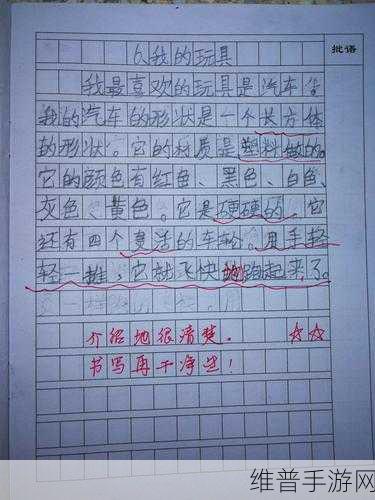 6.我的玩具
批语
我最喜欢的玩具是汽车。
我的汽车的形状是一个长方体
的形状。它的材质是塑料做的。
它的颜色有红色、黑色、白色、
灰色、黄色。它是硬硬的,它
还有四个灵活的车轮。用手轻
轻一推,它就飞快地跑起来了。
介绍地很清楚。
书写再干净些!
维普手游网